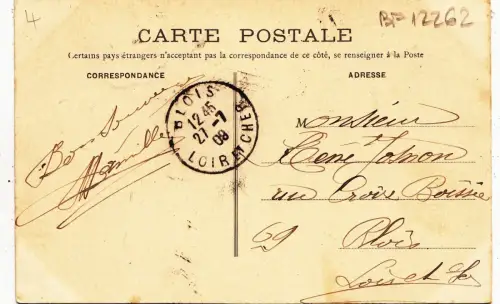 4
BF 12262
CARTE POSTALE
Certains pays étrangers n'acceptant pas la correspondance de ce côté, se renseigner à la Poste
CORRESPONDANCE
ADRESSE
BLOIS
12 45
27-7
09
LOIR ET CHER
Bon Souvenir
Monsieur
René
rue Croix Boissée
59 Blois
Loir et Cher